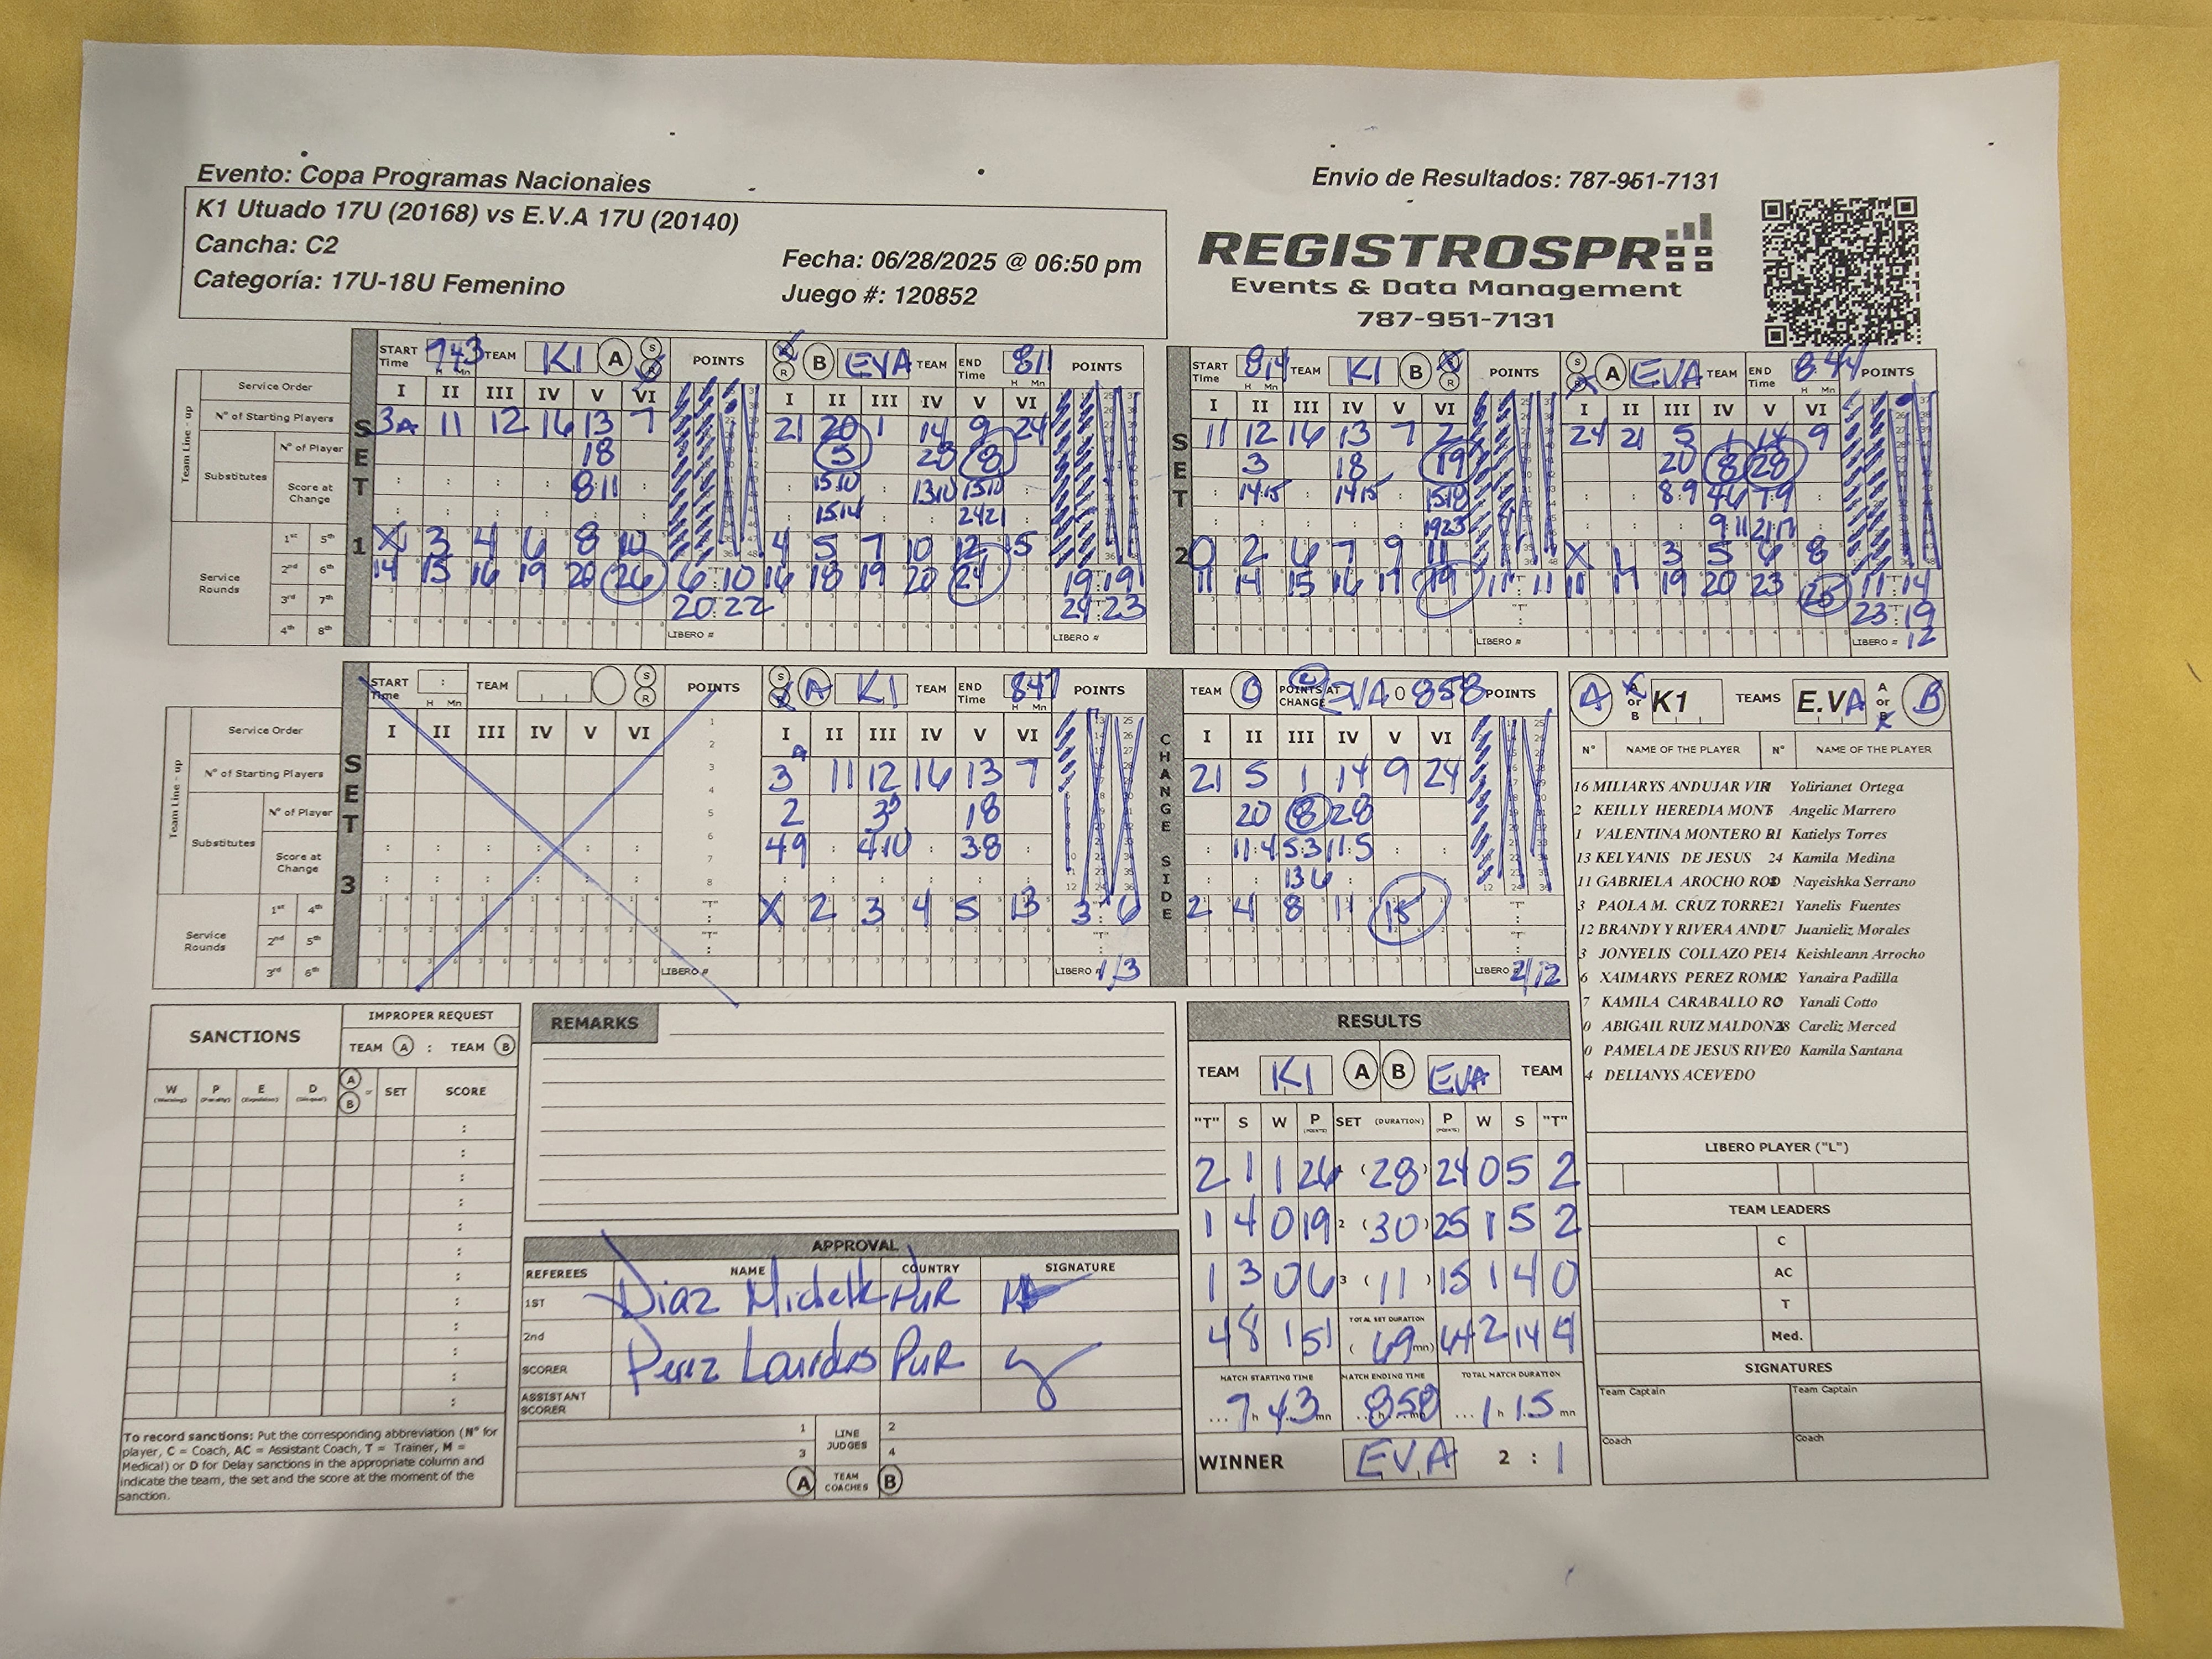 Evento: Copa Programas Nacionales
Envio de Resultados: 787-951-7131
K1 Utuado 17U (20168) vs E.V.A 17U (20140)
Cancha: C2
Fecha: 06/28/2025 @ 06:50 pm
Categoría: 17U-18U Femenino
Juego #: 120852
REGISTROSPR
Events & Data Management
787-951-7131
START Time 743 TEAM K1 A S R POINTS
S R B EVA TEAM END Time 811 POINTS
START Time 814 TEAM K1 B S R POINTS
S R A EVA TEAM END Time 844 POINTS
Team Line - up
Service Order
I II III IV V VI
I II III IV V VI
I II III IV V VI
I II III IV V VI
N° of Starting Players
3A 11 12 16 13 7
21 20 1 14 9 24
11 12 16 13 7 2
24 21 5 1 14 9
Substitutes
N° of Player
18
5 28 8
3 18 19
20 8 28
Score at Change
8:11
15:10 13:10 15:10
14:15 14:15 15:18
8:9 4:6 7:9
15:14 24:21
19:23
9:11 21:17
SET 1
SET 2
Service Rounds
1st 5th
X 3 4 6 8 10
4 5 7 10 12 15
0 2 6 7 9 11
X 1 3 5 6 8
2nd 6th
14 15 16 19 20 26 6:10
16 18 19 20 24 19:19
11 14 15 16 17 19 11:11
11 17 19 20 23 25 11:14
3rd 7th
20:22
24:23
"T"
23:19
4th 8th
LIBERO #
LIBERO #
LIBERO #
LIBERO # 12
START Time TEAM S R POINTS
S R A K1 TEAM END Time 847 POINTS
TEAM B POINTS AT CHANGE EVA 858 POINTS
Team Line - up
Service Order
I II III IV V VI
I II III IV V VI
I II III IV V VI
N° of Starting Players
3A 11 12 16 13 7
21 5 1 14 9 24
Substitutes
N° of Player
2 3 18
20 8 28
Score at Change
4:9 4:10 3:8
11:4 5:3 11:5
13:6
SET 3
CHANGE SIDE
Service Rounds
1st 4th
X 2 3 4 5 13 3:6
2 4 8 11 15
"T"
2nd 5th
"T"
"T"
3rd 6th
LIBERO #
LIBERO # 1/3
LIBERO # 2/12
A A or B K1 TEAMS E.VA A or B B
N° NAME OF THE PLAYER N° NAME OF THE PLAYER
16 MILIARYS ANDUJAR VIR Yolirianet Ortega
2 KEILLY HEREDIA MONT Angelic Marrero
1 VALENTINA MONTERO Katielys Torres
13 KELYANIS DE JESUS 24 Kamila Medina
11 GABRIELA AROCHO Nayeishka Serrano
3 PAOLA M. CRUZ TORRE 21 Yanelis Fuentes
12 BRANDY Y RIVERA AND Juanieliz Morales
3 JONYELIS COLLAZO PE 14 Keishleann Arrocho
6 XAIMARYS PEREZ ROM Yanaira Padilla
7 KAMILA CARABALLO Yanali Cotto
0 ABIGAIL RUIZ MALDON Careliz Merced
0 PAMELA DE JESUS RIVE Kamila Santana
4 DELIANYS ACEVEDO
LIBERO PLAYER ("L")
TEAM LEADERS
C
AC
T
Med.
SIGNATURES
Team Captain
Team Captain
Coach
Coach
SANCTIONS
IMPROPER REQUEST
TEAM A : TEAM B
W (Warning) P (Penalty) E (Expulsion) D (Disqual) A or B SET SCORE
To record sanctions: Put the corresponding abbreviation (N° for
player, C = Coach, AC = Assistant Coach, T = Trainer, M =
Medical) or D for Delay sanctions in the appropriate column and
indicate the team, the set and the score at the moment of the
sanction.
REMARKS
APPROVAL
REFEREES NAME COUNTRY SIGNATURE
1ST Diaz Michelle PUR
2nd
SCORER Perez Lourdes PUR
ASSISTANT SCORER
1 LINE JUDGES 2
3 4
A TEAM COACHES B
RESULTS
TEAM K1 A B EVA TEAM
"T" S W P (POINTS) SET (DURATION) P (POINTS) W S "T"
2 1 1 26 1 (28) 24 0 5 2
1 4 0 19 2 (30) 25 1 5 2
1 3 0 6 3 (11) 15 1 4 0
TOTAL SET DURATION
4 8 1 51 (69 mn) 64 2 14 4
MATCH STARTING TIME MATCH ENDING TIME TOTAL MATCH DURATION
7 h 43 mn 858 1 h 15 mn
WINNER EVA 2 : 1